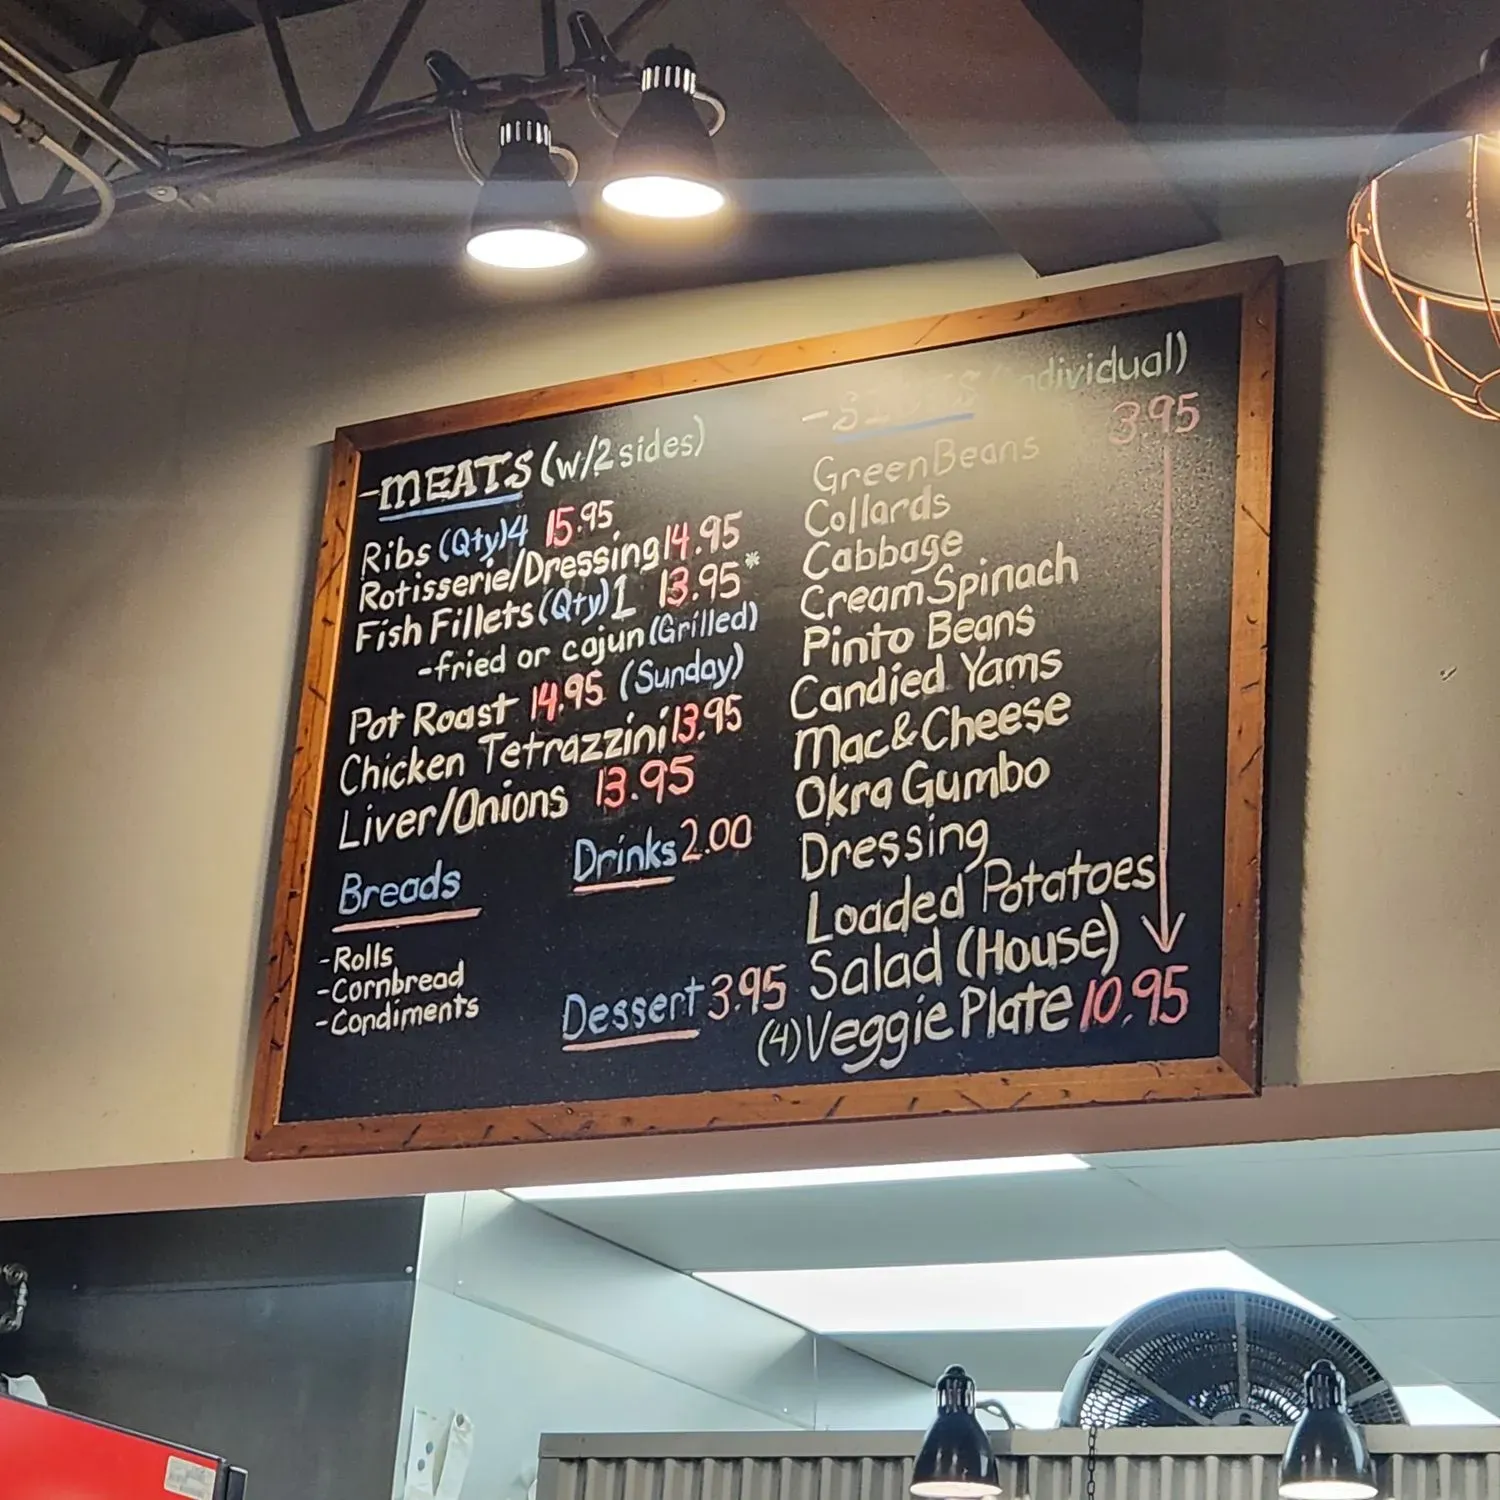 -MEATS (w/2 sides)
Ribs (Qty)4 15.95
Rotisserie/Dressing 14.95
Fish Fillets (Qty) 1 13.95*
-fried or cajun (Grilled)
Pot Roast 14.95 (Sunday)
Chicken Tetrazzini 13.95
Liver/Onions 13.95
Breads
-Rolls
-Cornbread
-Condiments
Drinks 2.00
Dessert 3.95
-SIDES (individual)
3.95
Green Beans
Collards
Cabbage
Cream Spinach
Pinto Beans
Candied Yams
Mac & Cheese
Okra Gumbo
Dressing
Loaded Potatoes
Salad (House)
(4) Veggie Plate 10.95